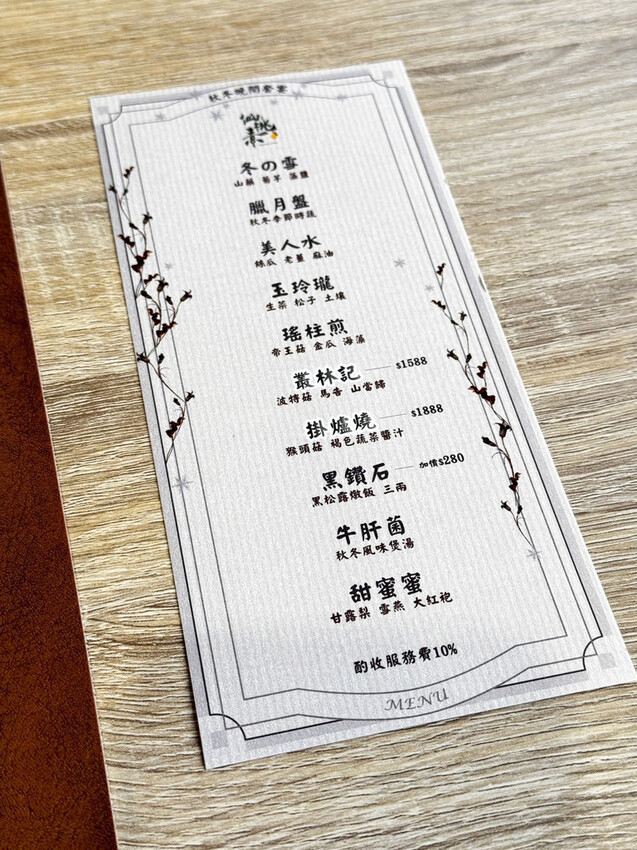 秋冬晚間套宴
仙桃素
冬の雪
山蘇 筍芋 藻鹽
臘月盤
秋冬季節時蔬
美人水
絲瓜 老薑 麻油
玉玲瓏
生菜 松子 土壤
瑤柱煎
帝王菇 金瓜 海藻
叢林記 $1588
波特菇 馬告 山當歸
掛爐燒 $1888
猴頭菇 褐色蔬菜醬汁
黑鑽石 加價$280
黑松露燉飯 三兩
牛肝菌
秋冬風味煲湯
甜蜜蜜
甘露梨 雪燕 大紅袍
酌收服務費10%
MENU